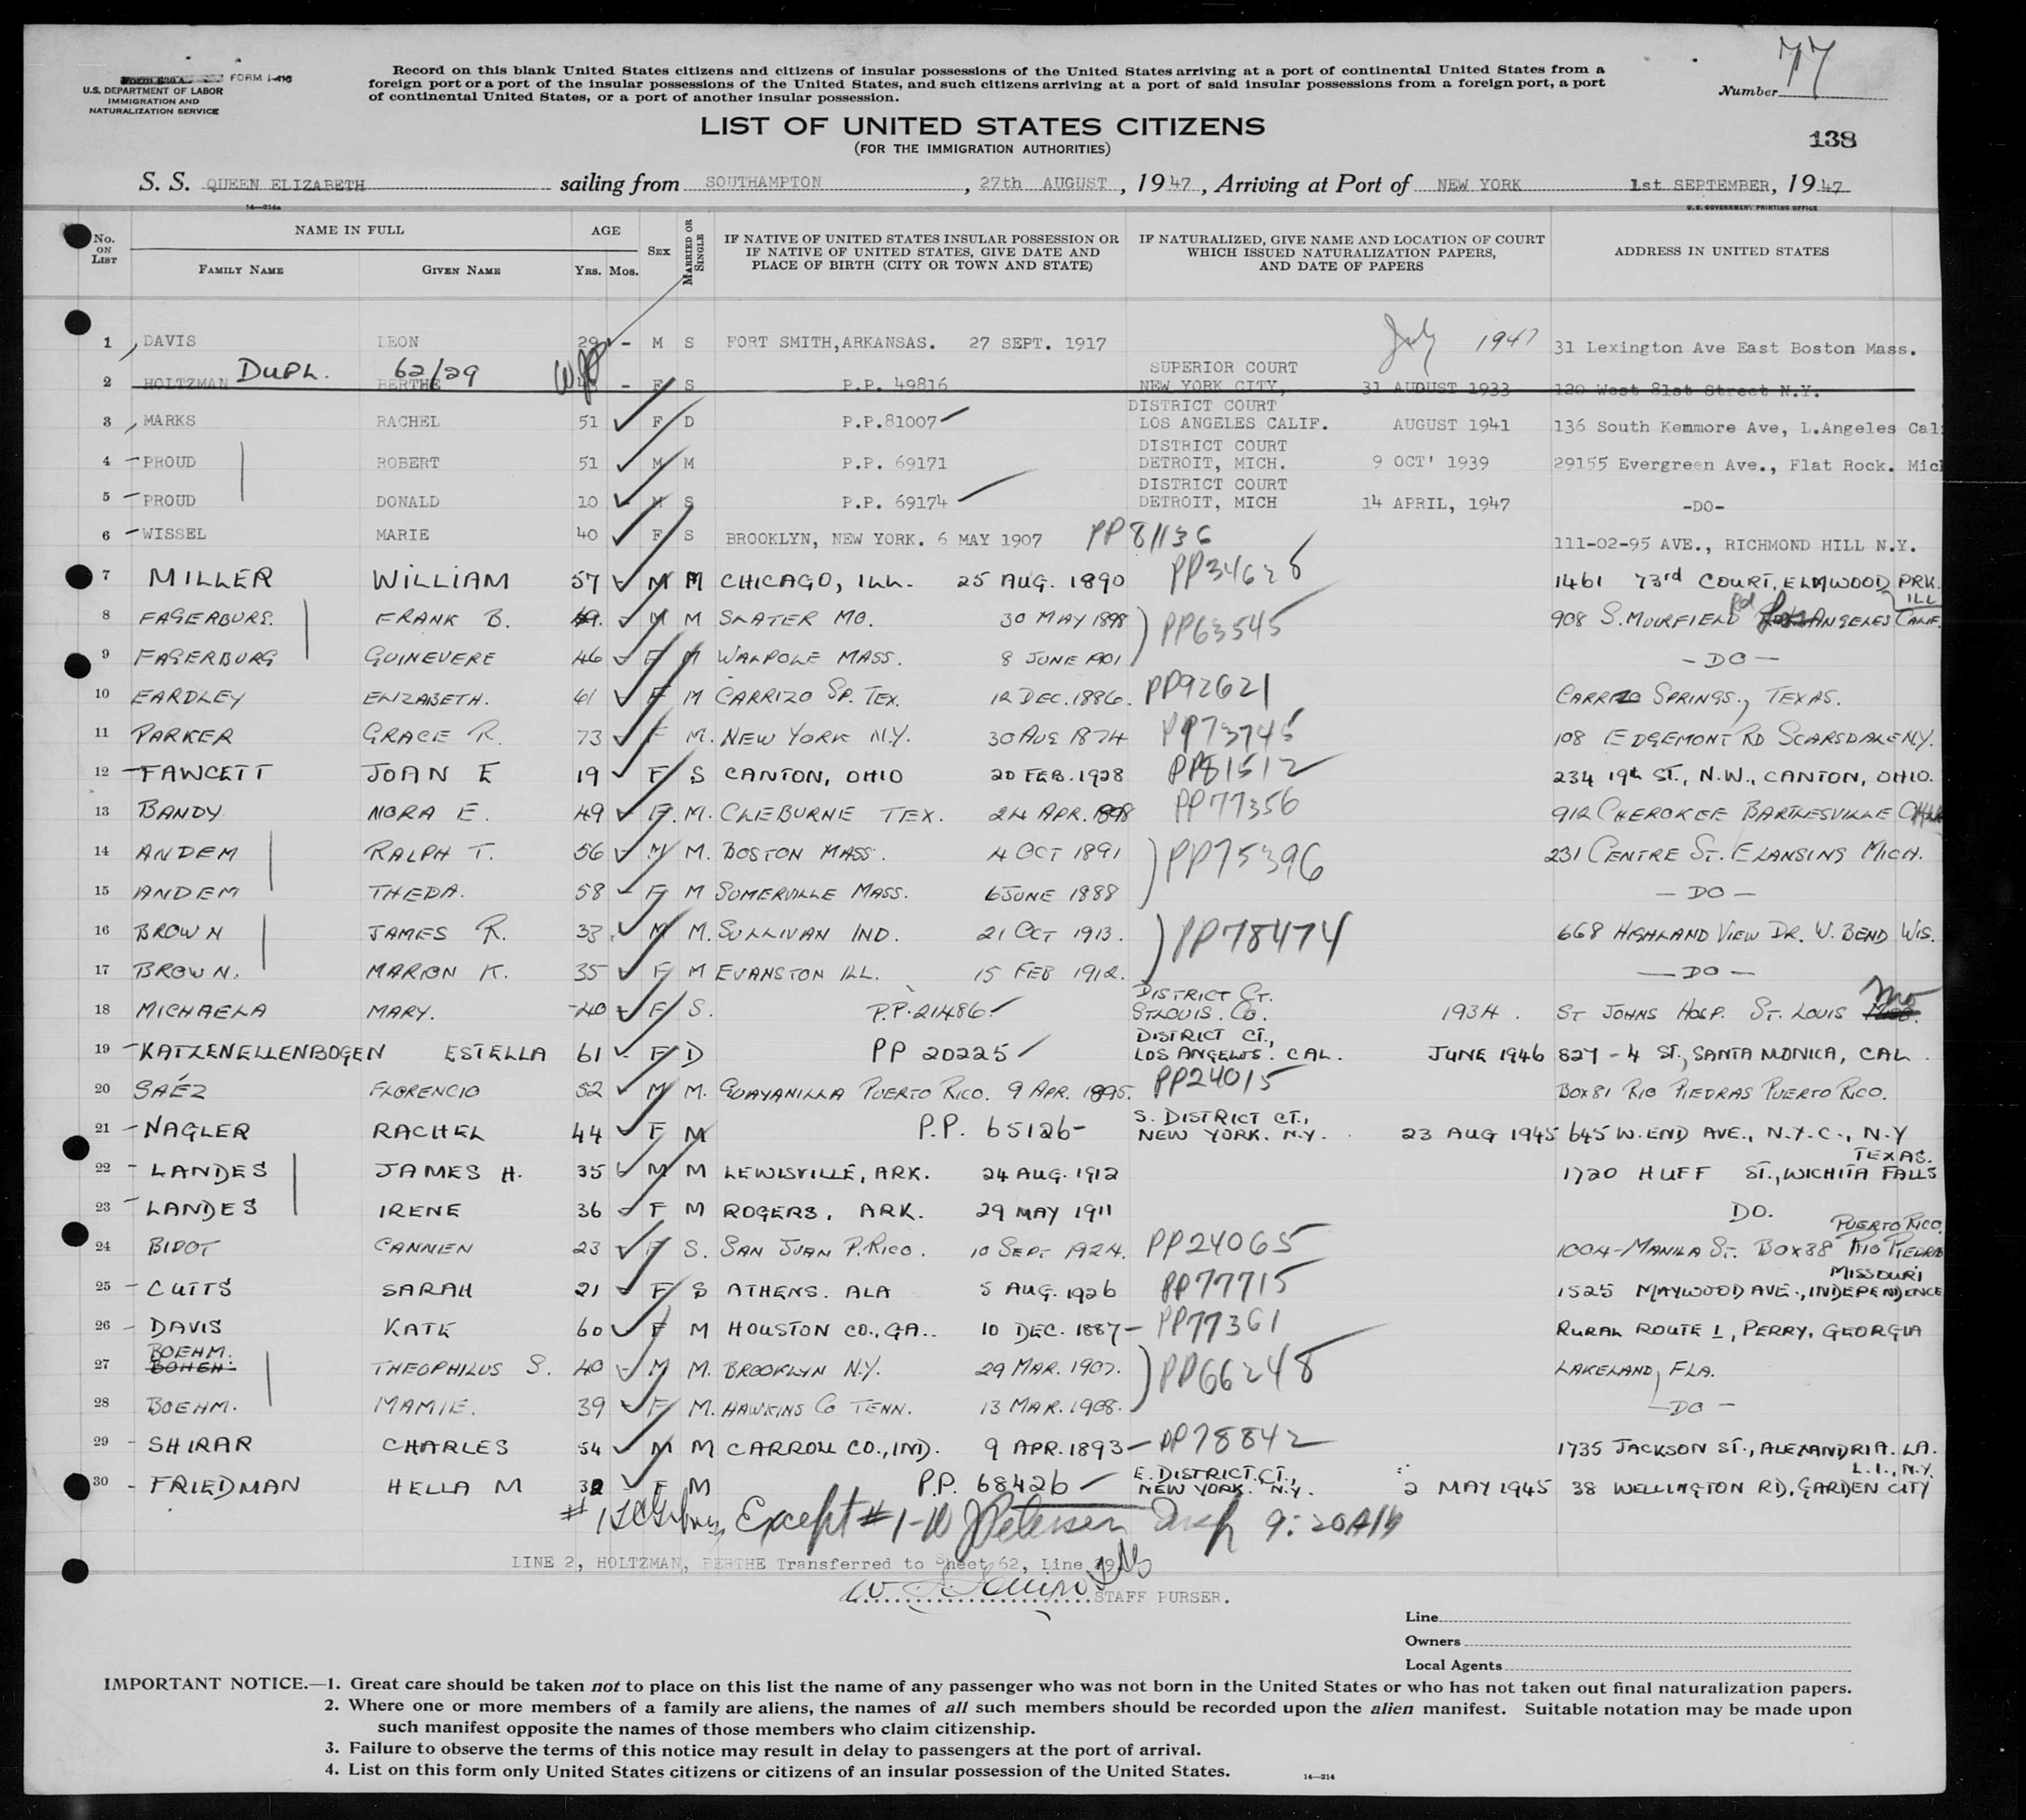 77
FORM I-416
U.S. DEPARTMENT OF LABOR
IMMIGRATION AND
NATURALIZATION SERVICE
Record on this blank United States citizens and citizens of insular possessions of the United States arriving at a port of continental United States from a
foreign port or a port of the insular possessions of the United States, and such citizens arriving at a port of said insular possessions from a foreign port, a port
of continental United States, or a port of another insular possession.
Number
LIST OF UNITED STATES CITIZENS
(FOR THE IMMIGRATION AUTHORITIES)
138
S. S. QUEEN ELIZABETH sailing from SOUTHAMPTON, 27th AUGUST, 1947, Arriving at Port of NEW YORK 1st SEPTEMBER, 1947
14—214a U. S. GOVERNMENT PRINTING OFFICE
No. ON LIST
NAME IN FULL
FAMILY NAME GIVEN NAME
AGE
YRS. MOS.
SEX
MARRIED OR SINGLE
IF NATIVE OF UNITED STATES INSULAR POSSESSION OR
IF NATIVE OF UNITED STATES, GIVE DATE AND
PLACE OF BIRTH (CITY OR TOWN AND STATE)
IF NATURALIZED, GIVE NAME AND LOCATION OF COURT
WHICH ISSUED NATURALIZATION PAPERS,
AND DATE OF PAPERS
ADDRESS IN UNITED STATES
1 DAVIS LEON 29 - M S FORT SMITH, ARKANSAS. 27 SEPT. 1917 July 1947 31 Lexington Ave East Boston Mass.
DUPL. 62/29 SUPERIOR COURT
2 HOLTZMAN BERTHE - F S P.P. 49816 NEW YORK CITY, 31 AUGUST 1933 120 West 81st Street N.Y.
DISTRICT COURT
3 MARKS RACHEL 51 F D P.P.81007 LOS ANGELES CALIF. AUGUST 1941 136 South Kenmore Ave, L.Angeles Cal
DISTRICT COURT
4 PROUD ROBERT 51 M M P.P. 69171 DETROIT, MICH. 9 OCT' 1939 29155 Evergreen Ave., Flat Rock. Mich
DISTRICT COURT
5 PROUD DONALD 10 - M S P.P. 69174 DETROIT, MICH 14 APRIL, 1947 -DO-
6 WISSEL MARIE 40 F S BROOKLYN, NEW YORK. 6 MAY 1907 PP81136 111-02-95 AVE., RICHMOND HILL N.Y.
7 MILLER WILLIAM 57 M M CHICAGO, ILL. 25 AUG. 1890 PP34628 1461 73rd COURT, ELMWOOD PRK. ILL
8 FAGERBURG. FRANK B. 49. M M SLATER MO. 30 MAY 1898 PP63545 908 S. MUIRFIELD Rd Los ANGELES CALIF.
9 FAGERBURG GUINEVERE 46 F M WALPOLE MASS. 8 JUNE 1901 - DO -
10 EARDLEY ELIZABETH. 61 F M CARRIZO SP. TEX. 12 DEC. 1886. PP92621 CARRIZO SPRINGS., TEXAS.
11 PARKER GRACE R. 73 F M. NEW YORK N.Y. 30 AUG 1874 PP73745 108 EDGEMONT RD SCARSDALE N.Y.
12 FAWCETT JOAN E 19 F S CANTON, OHIO 20 FEB. 1928 PP81512 234 19th ST., N.W., CANTON, OHIO.
13 BANDY NORA E. 49 F. M. CLEBURNE TEX. 24 APR. 1898 PP77356 912 CHEROKEE BARTLESVILLE OKLA
14 ANDEM RALPH T. 56 M M. BOSTON MASS. 4 OCT 1891 PP75396 231 CENTRE ST. E LANSING MICH.
15 ANDEM THEDA. 58 F M SOMERVILLE MASS. 6 JUNE 1888 - DO -
16 BROWN JAMES R. 33. M M. SULLIVAN IND. 21 OCT 1913. PP78474 668 HIGHLAND VIEW DR. W. BEND WIS.
17 BROWN. MARION K. 35 F M EVANSTON ILL. 15 FEB 1912. - DO -
DISTRICT CT.
18 MICHAELA MARY. 40 F S. P.P. 21486 ST LOUIS. CO. 1934. ST JOHNS HOSP. ST. LOUIS Mo
DISTRICT CT.,
19 KATZENELLENBOGEN ESTELLA 61 F D PP 20225 LOS ANGELES. CAL. JUNE 1946 827 - 4 ST., SANTA MONICA, CAL
20 SAÉZ FLORENCIO 52 M M. GUAYANILLA PUERTO RICO. 9 APR. 1895. PP24015 BOX 81 RIO PIEDRAS PUERTO RICO.
S. DISTRICT CT.,
21 NAGLER RACHEL 44 F M P.P. 65126- NEW YORK. N.Y. 23 AUG 1945 645 W. END AVE., N.Y.C., N.Y
TEXAS.
22 LANDES JAMES H. 35 M M LEWISVILLE, ARK. 24 AUG. 1912 1720 HUFF ST., WICHITA FALLS
23 LANDES IRENE 36 F M ROGERS, ARK. 29 MAY 1911 DO.
PUERTO RICO
24 BIDOT CANNEN 23 F S. SAN JUAN P. RICO. 10 SEPT 1924. PP24065 1004-MANILA ST. BOX 38 RIO PIEDRAS
MISSOURI
25 CUTTS SARAH 21 F S ATHENS. ALA 5 AUG. 1926 PP77715 1525 MAYWOOD AVE., INDEPENDENCE
26 DAVIS KATE 60 F M HOUSTON CO., GA.. 10 DEC. 1887- PP77361 RURAL ROUTE 1, PERRY, GEORGIA
BOEHM.
27 BOHEH. THEOPHILUS S. 40 M M. BROOKLYN N.Y. 29 MAR. 1907. PP66248 LAKELAND, FLA.
28 BOEHM. MAMIE. 39 F M. HAWKINS CO TENN. 13 MAR. 1908. - DO -
29 SHIRAR CHARLES 54 M M CARROLL CO., IND. 9 APR. 1893- PP78842 1735 JACKSON ST., ALEXANDRIA. LA.
E. DISTRICT. CT., L.I., N.Y.
30 FRIEDMAN HELLA M 32 F M P.P. 68426 NEW YORK. N.Y. 2 MAY 1945 38 WELLINGTON RD. GARDEN CITY
#1 Except #1-10 J Petersen Insp 9:20 AM
LINE 2, HOLTZMAN, BERTHE Transferred to Sheet 62, Line 29
STAFF PURSER.
Line
Owners
Local Agents
IMPORTANT NOTICE.—1. Great care should be taken not to place on this list the name of any passenger who was not born in the United States or who has not taken out final naturalization papers.
2. Where one or more members of a family are aliens, the names of all such members should be recorded upon the alien manifest. Suitable notation may be made upon
such manifest opposite the names of those members who claim citizenship.
3. Failure to observe the terms of this notice may result in delay to passengers at the port of arrival.
4. List on this form only United States citizens or citizens of an insular possession of the United States.
14—214